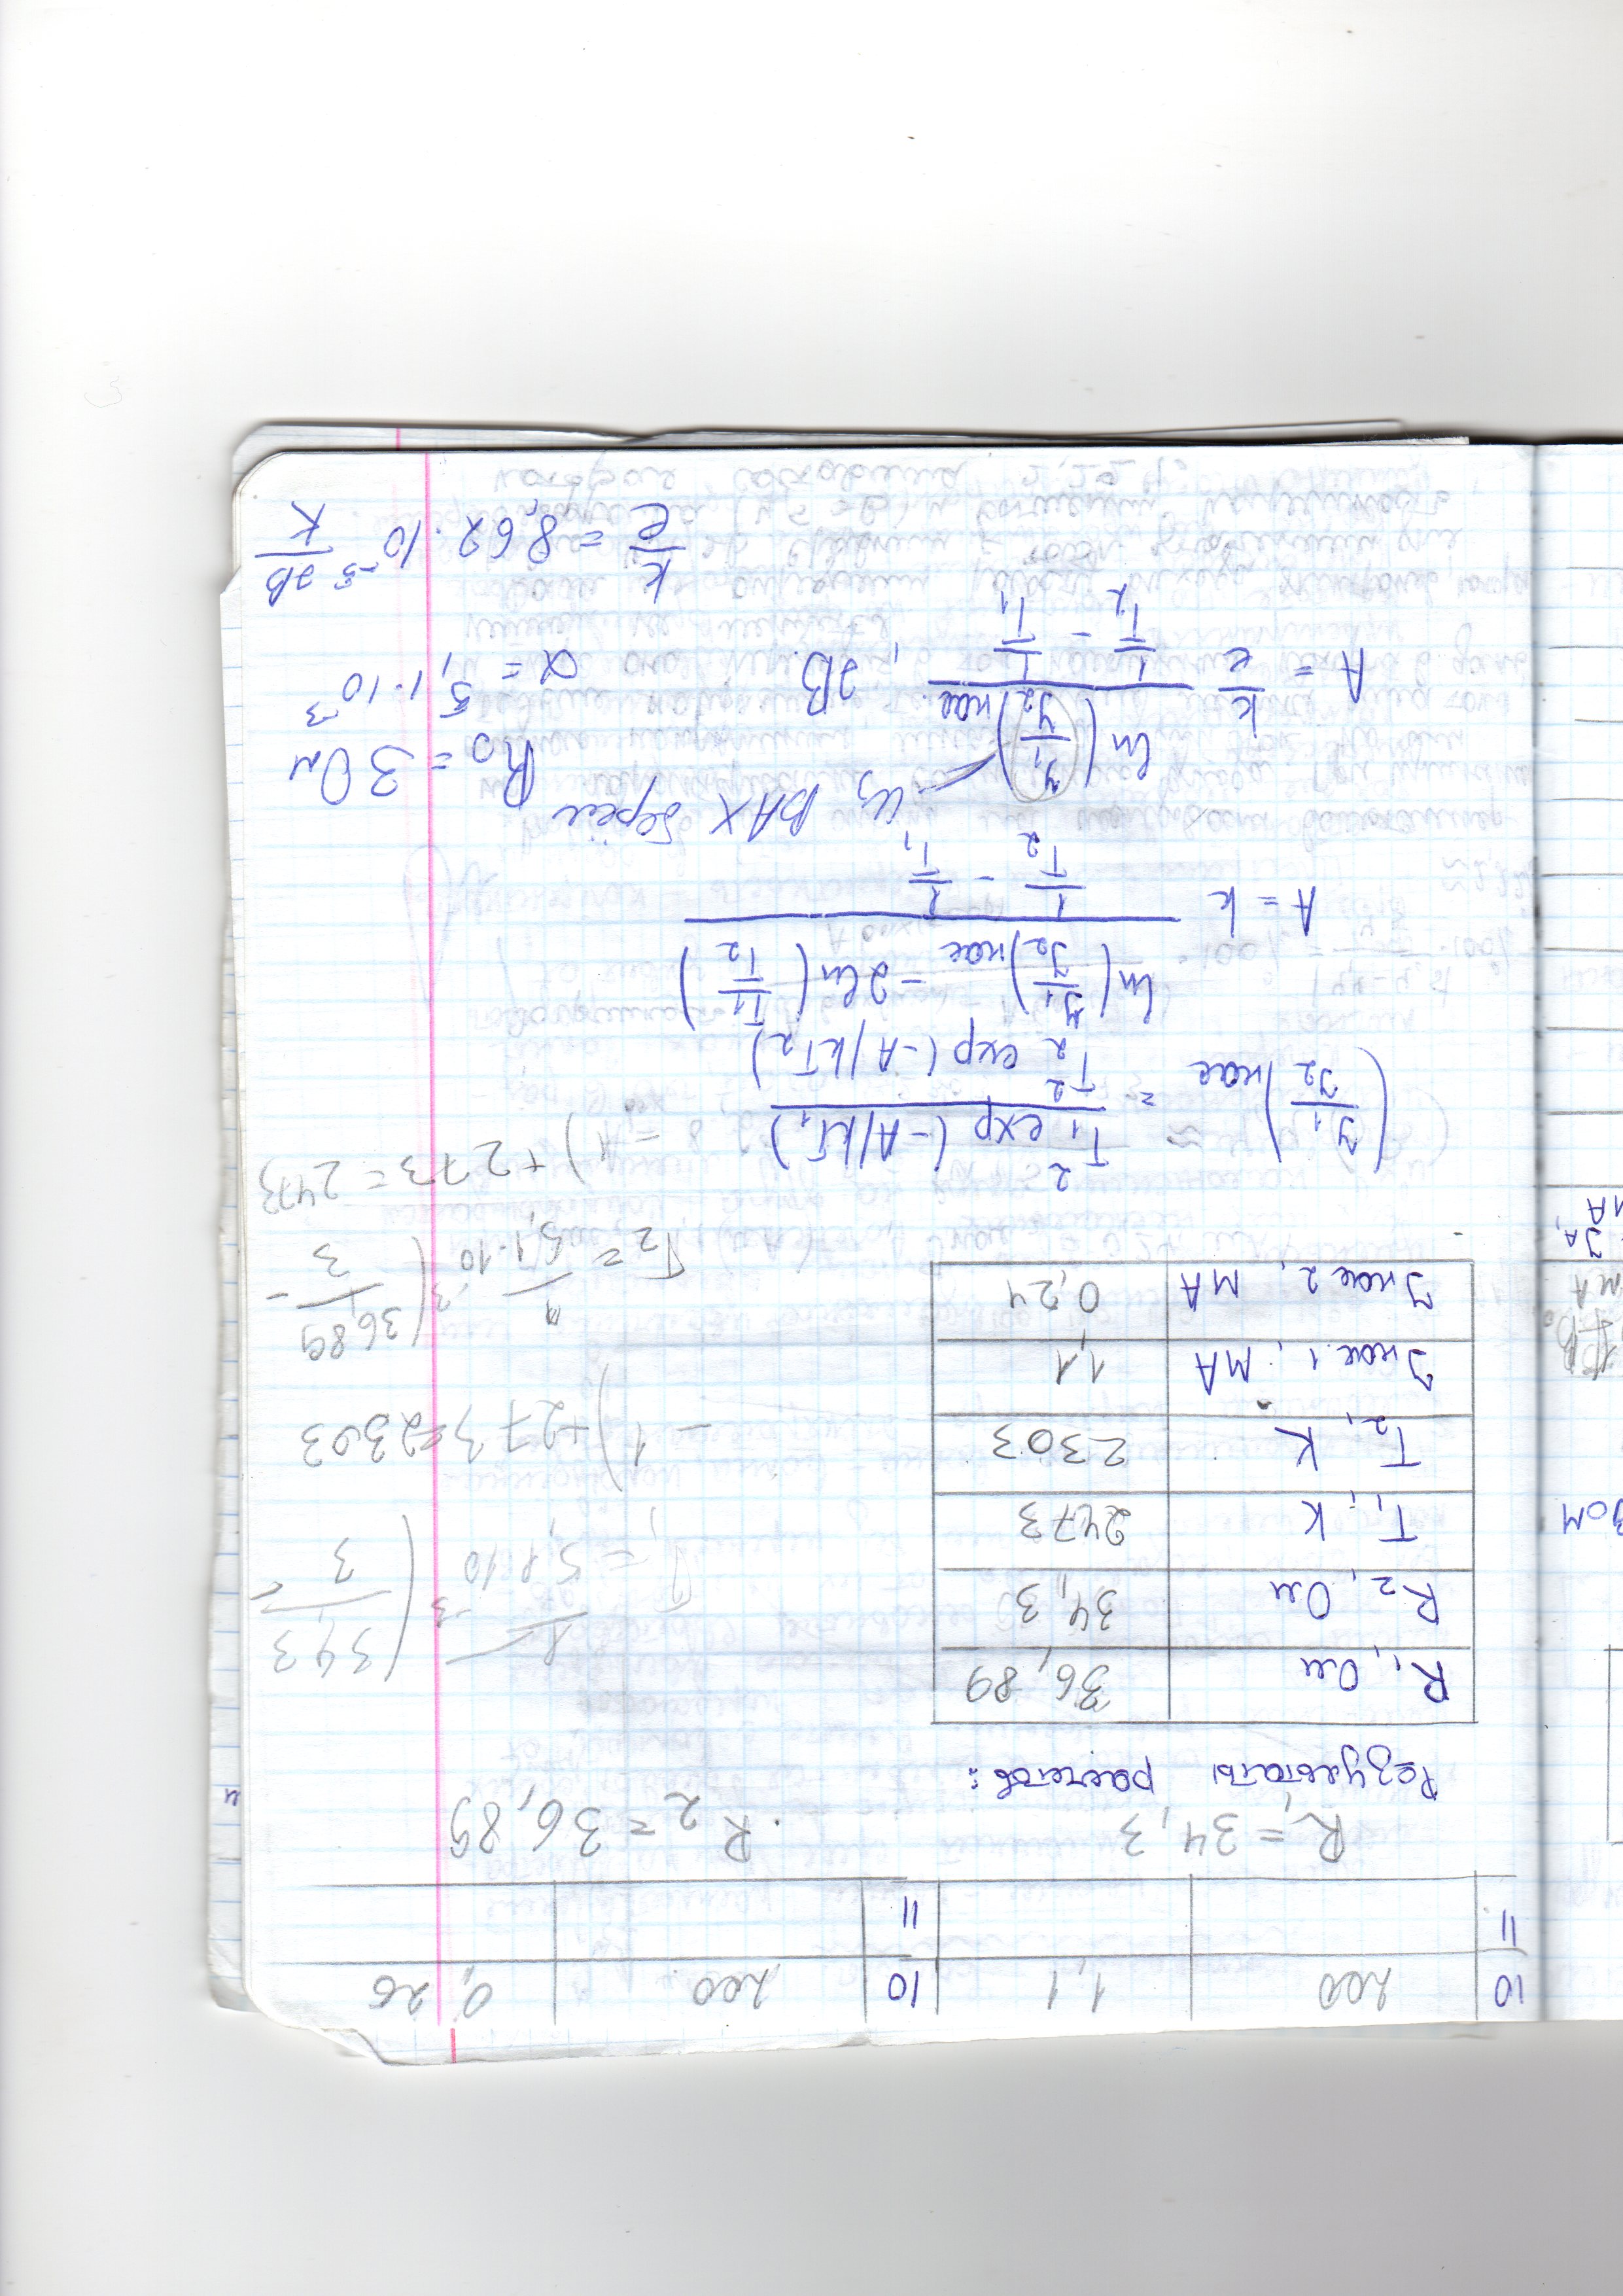 10 200 1,1 10 200 0,26
11 11
R₁ = 34,3 R₂ = 36,89
Результаты расчетов:
R₁, Ом 36,89
R₂, Ом 34,3
T₁, К 2473
T₂, К 2303
Jнас.1, мА 1,1
Jнас 2, мА 0,24
T₁ = 1/(5,1·10⁻³) (34,3/3 -
- 1) + 273 = 2303
T₂ = 1/(5,1·10⁻³) (36,89/3 -
1) + 273 = 2473
(J₁/J₂)нас = T₁² exp(-A/kT₁) / T₂² exp(-A/kT₂)
A = k (ln(J₁/J₂)нас - 2ln(T₁/T₂)) / (1/T₂ - 1/T₁)
из ВАХ берём
A = k/e ln(J₁/J₂)нас. / (1/T₂ - 1/T₁), эВ.
R₀ = 3 Ом
α = 5,1·10⁻³
k/e = 8,62·10⁻⁵ эВ/К
ЗОМ
мА
JА,